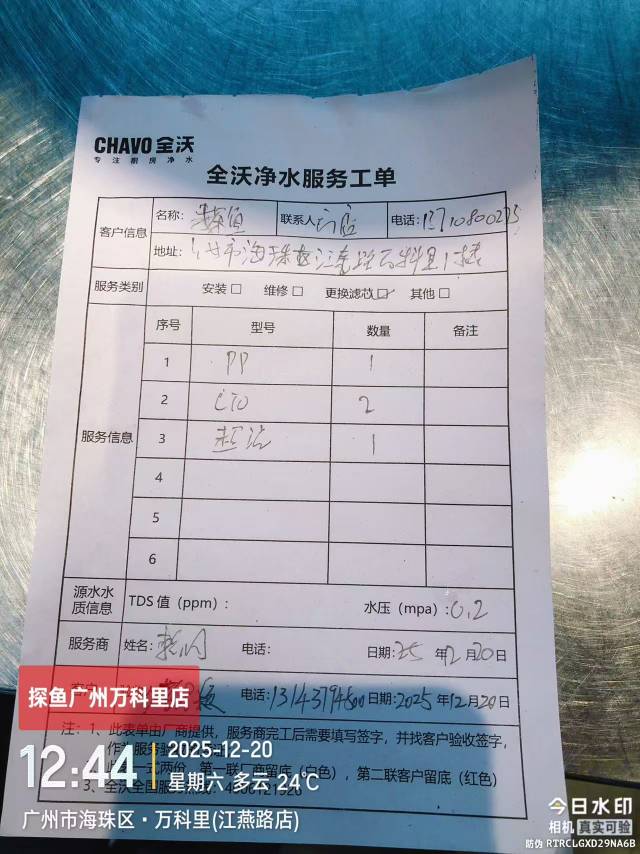 CHAVO 全沃
专注厨房净水
全沃净水服务工单
客户信息 名称: 探鱼 联系人 门店 电话: 13710800235
地址: 广州市海珠区江燕路万科里1楼
服务类别 安装□ 维修□ 更换滤芯☑ 其他□
服务信息
序号 型号 数量 备注
1 PP 1
2 CTO 2
3 超滤 1
4
5
6
源水水质信息 TDS 值(ppm): 水压(mpa): 0.2
服务商 姓名: 电话: 日期: 25 年12月20日
电话: 13143794800 日期: 2025年12月20日
注: 1、此表单由厂商提供,服务商完工后需要填写签字,并找客户验收签字,
一式两份,第一联厂商留底(白色),第二联客户留底(红色)
3、全沃全国服务热线:
探鱼广州万科里店
12:44
2025-12-20
星期六 多云 24℃
广州市海珠区·万科里(江燕路店)
今日水印
相机 真实可验
防伪 RTRCLGXD29NA6B